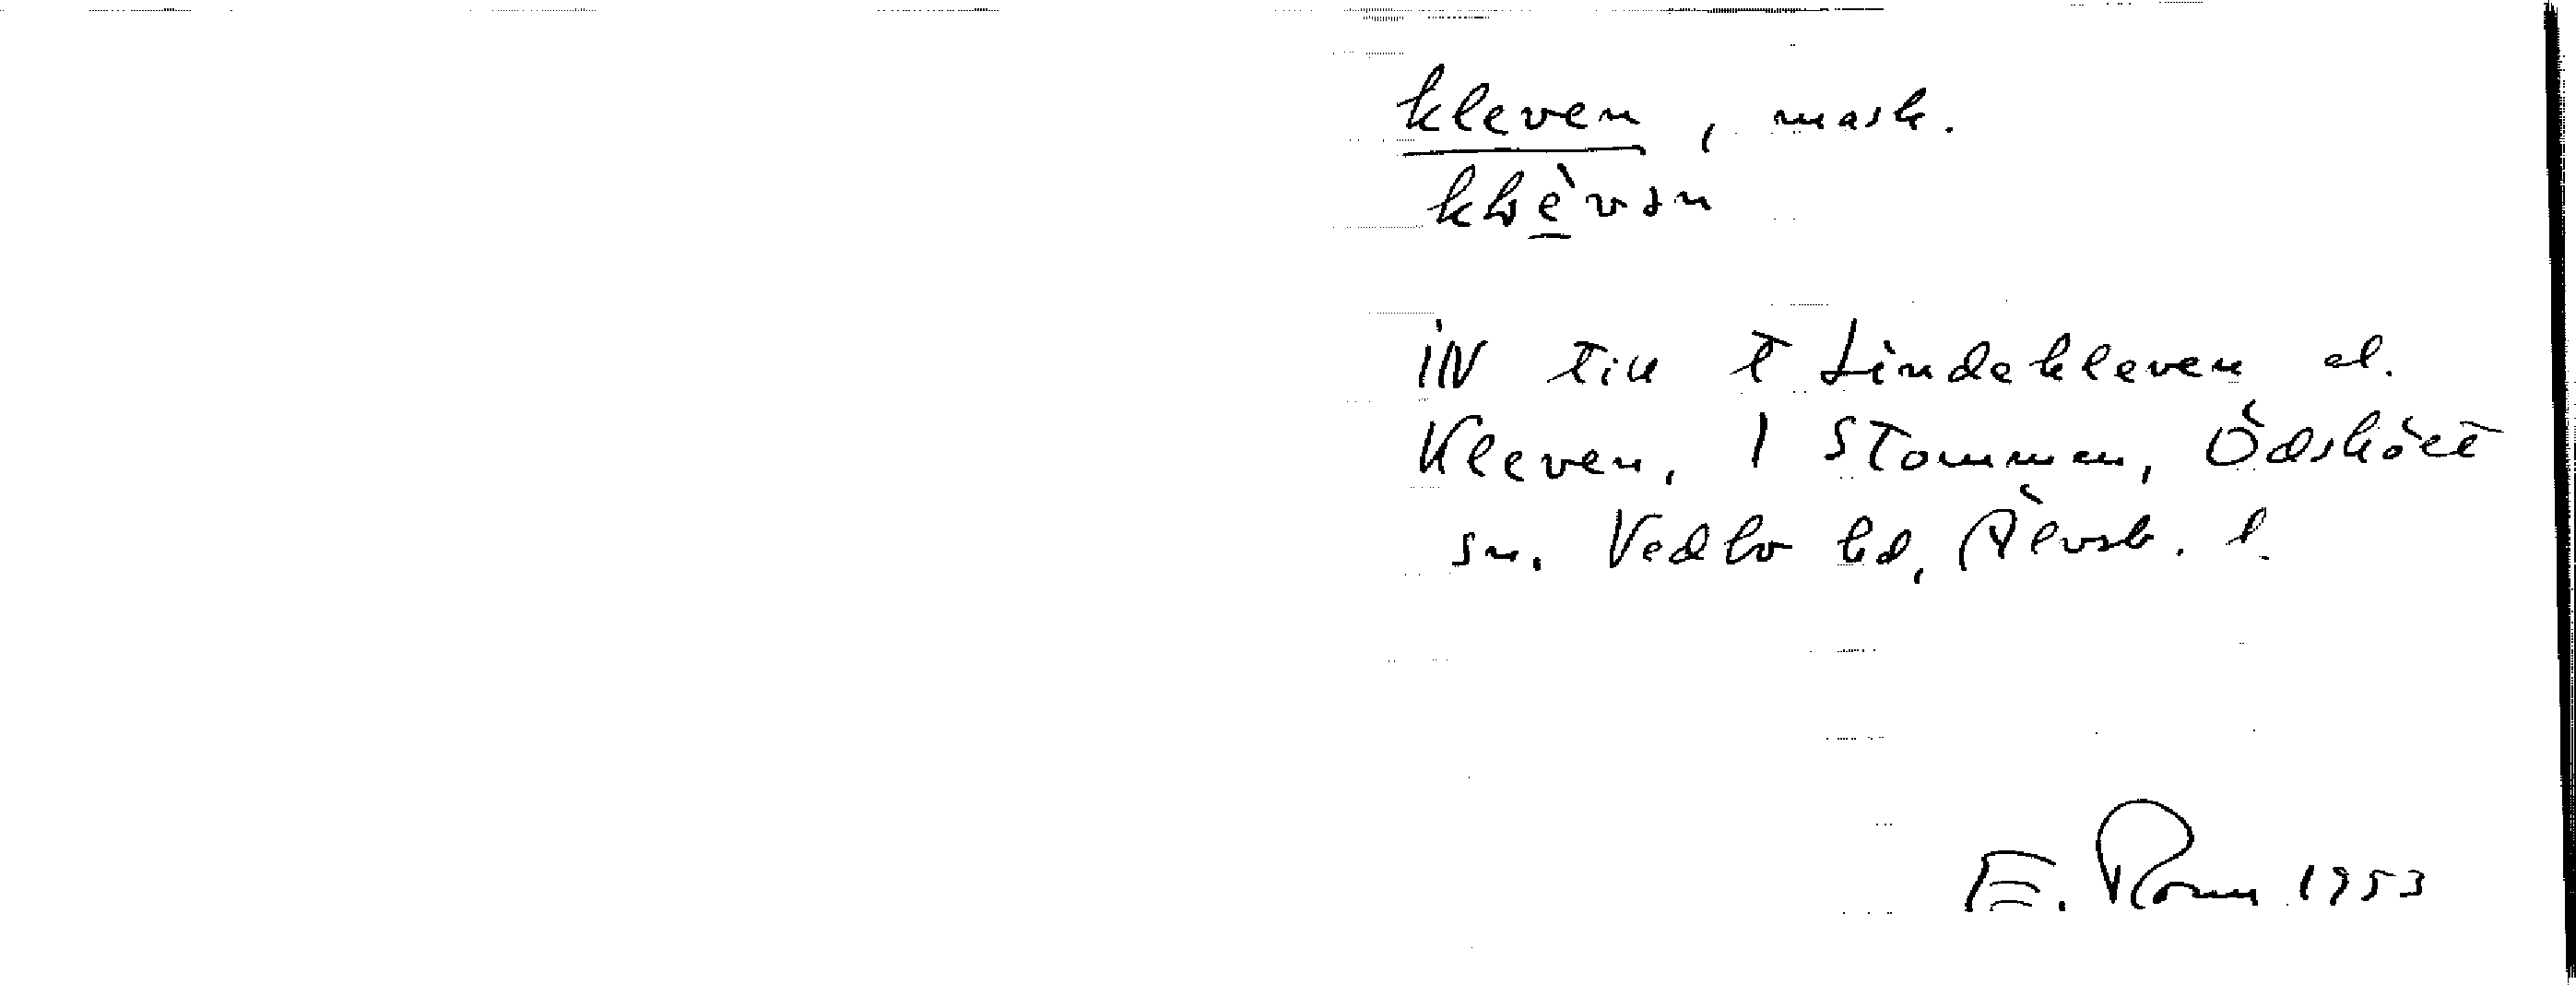 kleven, mask.
klèvən
IN till t Lindekleven el.
Kleven, 1 Stommen, Ödskölt
sn. Vedbo hd, Älvsb. l.
E. 1953